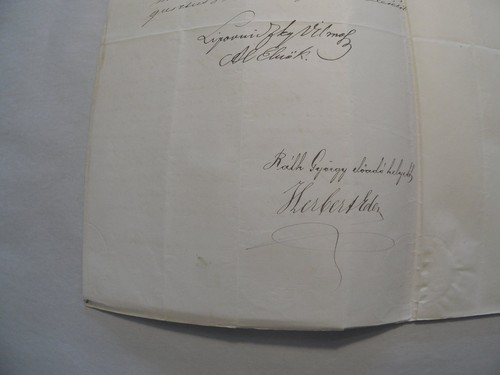 Lipovniczky Vilmos
Al Elnök.
Ráth György előadó helyett
Herbert Ede